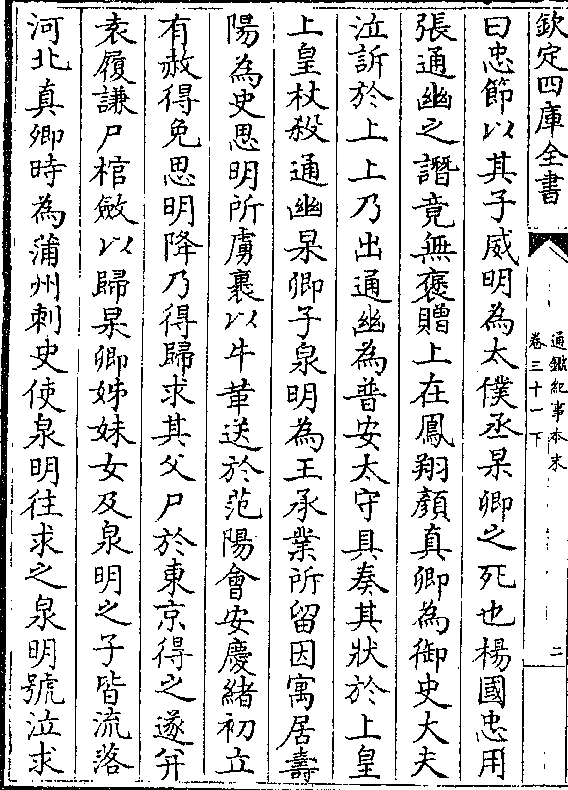 欽定四庫全書
通鑑紀事本末
卷三十一下
二
曰忠節以其子威明為太僕丞杲卿之死也楊國忠用
張通幽之譖竟無褒贈上在鳳翔顔真卿為御史大夫
泣訴於上上乃出通幽為普安太守具奏其狀於上皇
上皇杖殺通幽杲卿子泉明為王承業所留因寓居壽
陽為史思明所虜裹以牛革送於范陽會安慶緒初立
有赦得免思明降乃得歸求其父尸於東京得之遂并
袁履謙尸棺斂以歸杲卿姊妹女及泉明之子皆流落
河北真卿時為蒲州刺史使泉明往求之泉明號泣求